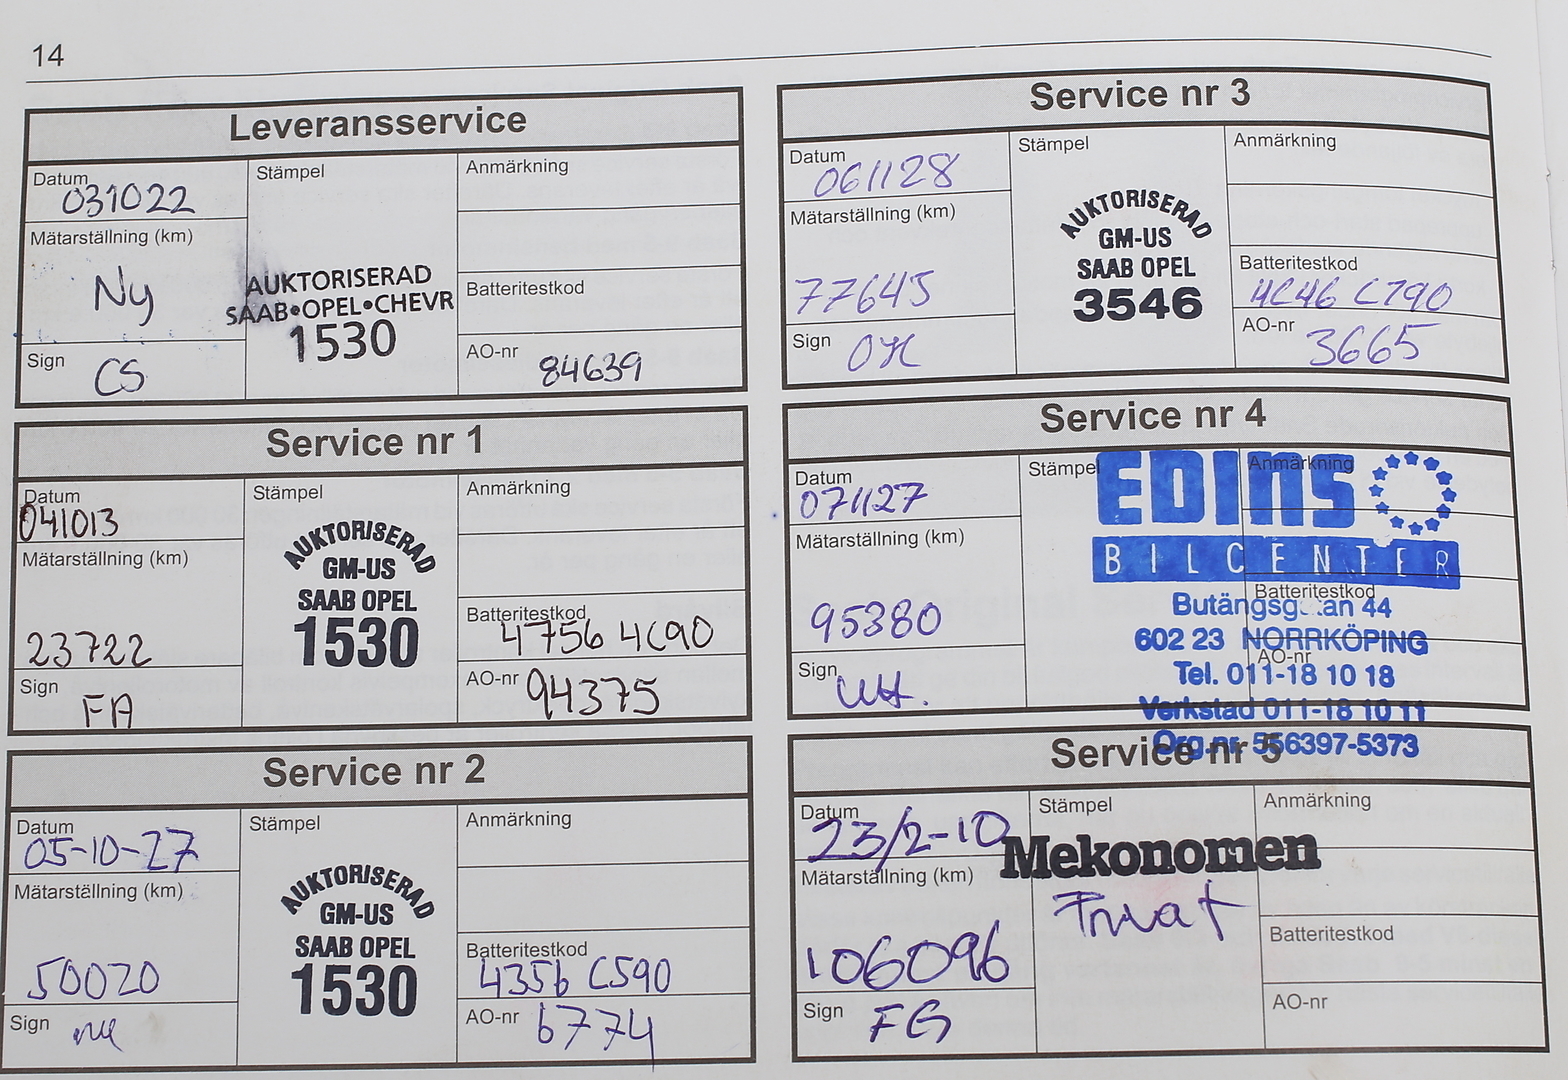 14
Leveransservice
Datum
031022
Stämpel
Anmärkning
Mätarställning (km)
Ny
AUKTORISERAD
SAAB•OPEL•CHEVR
1530
Batteritestkod
Sign
CS
AO-nr
84639
Service nr 1
Datum
041013
Stämpel
Anmärkning
Mätarställning (km)
23722
AUKTORISERAD
GM-US
SAAB OPEL
1530
Batteritestkod
4756 4C90
Sign
FA
AO-nr
94375
Service nr 2
Datum
05-10-27
Stämpel
Anmärkning
Mätarställning (km)
50020
AUKTORISERAD
GM-US
SAAB OPEL
1530
Batteritestkod
4356 C590
Sign
AO-nr
6774
Service nr 3
Datum
061128
Stämpel
Anmärkning
Mätarställning (km)
77645
AUKTORISERAD
GM-US
SAAB OPEL
3546
Batteritestkod
4C46 C790
Sign
AO-nr
3665
Service nr 4
Datum
071127
Stämpel
Anmärkning
Mätarställning (km)
95380
EDINS
BILCENTER
Butängsg an 44
602 23 NORRKÖPING
Tel. 011-18 10 18
Verkstad 011-18 10 11
Org.nr. 556397-5373
Batteritestkod
Sign
AO-nr
Service nr 5
Datum
23/2-10
Stämpel
Anmärkning
Mätarställning (km)
106096
Mekonomen
Privat
Batteritestkod
Sign
FG
AO-nr